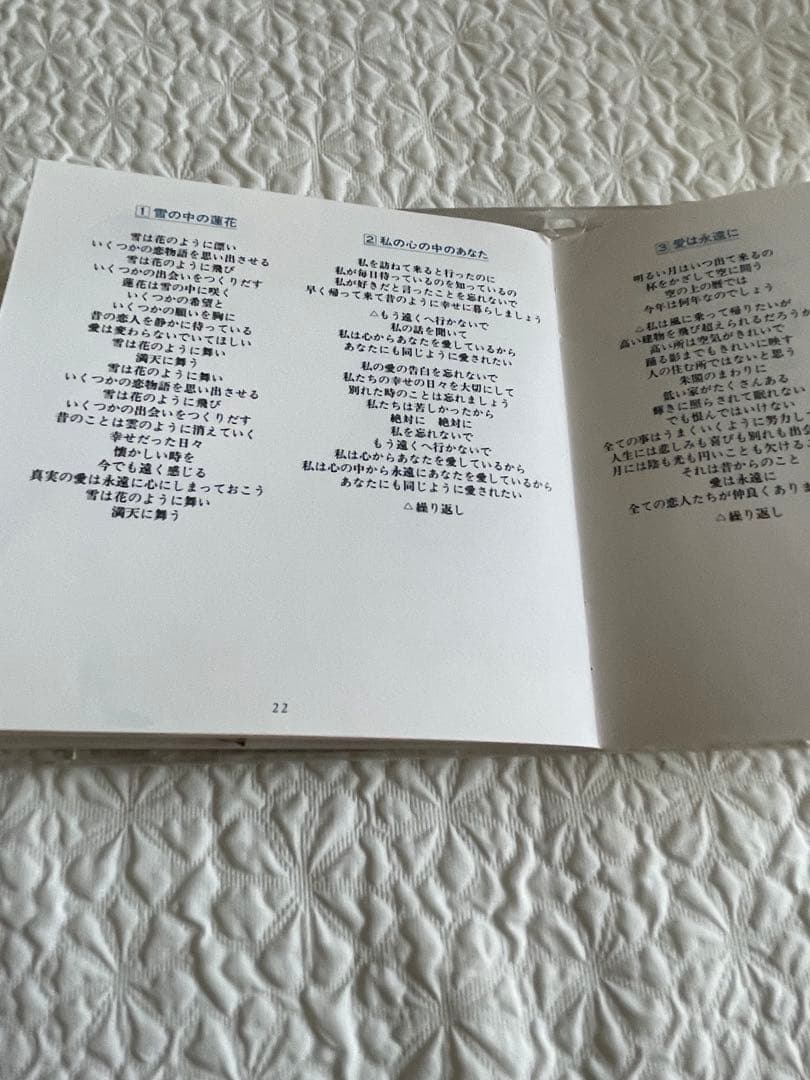 1 雪の中の蓮花
雪は花のように漂い
いくつかの恋物語を思い出させる
雪は花のように飛び
いくつかの出会いをつくりだす
蓮花は雪の中に咲く
いくつかの希望と
いくつかの願いを胸に
昔の恋人を静かに待っている
愛は変わらないでいてほしい
雪は花のように舞い
満天に舞う
雪は花のように舞い
いくつかの恋物語を思い出させる
雪は花のように飛び
いくつかの出会いをつくりだす
昔のことは雲のように消えていく
幸せだった日々
懐かしい時を
今でも遠く感じる
真実の愛は永遠に心にしまっておこう
雪は花のように舞い
満天に舞う
2 私の心の中のあなた
私を訪ねて来ると行ったのに
私が毎日待っているのを知っているの
私が好きだと言ったことを忘れないで
早く帰って来て昔のように幸せに暮らしましょう
△もう遠くへ行かないで
私の話を聞いて
私は心からあなたを愛しているから
あなたにも同じように愛されたい
私の愛の告白を忘れないで
私たちの幸せの日々を大切にして
別れた時のことは忘れましょう
私たちは苦しかったから
絶対に 絶対に
私を忘れないで
もう遠くへ行かないで
私は心からあなたを愛しているから
私は心の中から永遠にあなたを愛しているから
あなたにも同じように愛されたい
△繰り返し
3 愛は永遠に
明るい月はいつ出て来るの
杯をかざして空に問う
空の上の暦では
今年は何年なのでしょう
△私は風に乗って帰りたいが
高い建物を飛び超えられるだろうか
高い所は空気がきれいで
踊る影までもきれいに映す
人の住む所ではないと思う
朱閣のまわりに
低い家がたくさんある
輝きに照らされて眠れない
でも恨んではいけない
全ての事はうまくいくように努力し
人生には悲しみも喜びも別れも出会
月には陰も光も円いことも欠けるこ
それは昔からのこと
愛は永遠に
全ての恋人たちが仲良くありま
△繰り返し
22